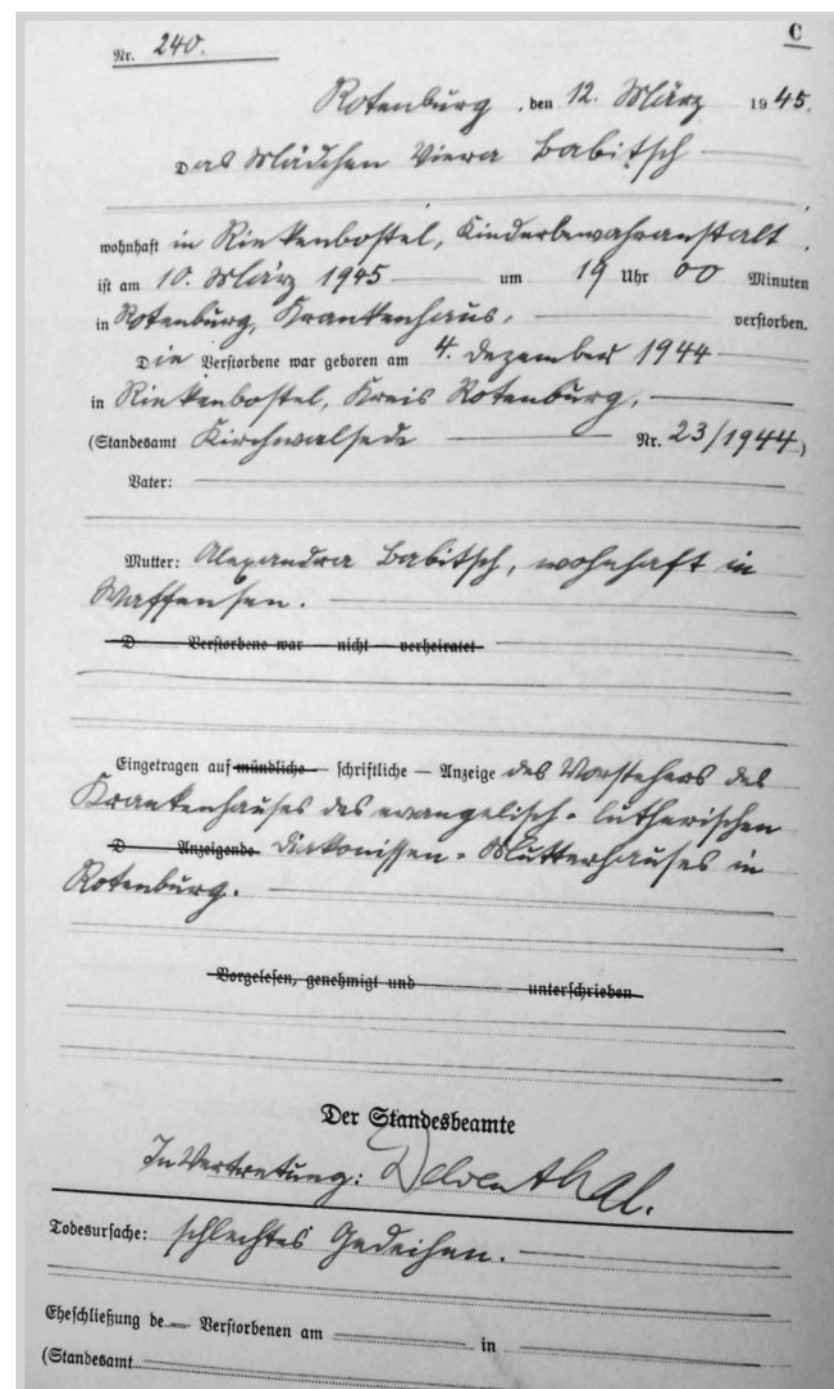 C
Nr. 240.
Rotenburg, den 12. März 1945.
Das Mädchen Viera Babitsch
wohnhaft in Rinkenbostel, Kinderbewahranstalt,
ist am 10. März 1945 um 19 Uhr 00 Minuten
in Rotenburg, Krankenhaus, verstorben.
Die Verstorbene war geboren am 4. Dezember 1944
in Rinkenbostel, Kreis Rotenburg,
(Standesamt Kirchwalsede Nr. 23/1944)
Vater:
Mutter: Alexandra Babitsch, wohnhaft in
Waffensen.
D Verstorbene war — nicht — verheiratet
Eingetragen auf mündliche — schriftliche — Anzeige des Vorstehers des
Krankenhauses des evangelisch-lutherischen
D Anzeigende Diakonissen-Mutterhauses in
Rotenburg.
Vorgelesen, genehmigt und unterschrieben
Der Standesbeamte
In Vertretung: Delventhal.
Todesursache: schlechtes Gedeihen.
Eheschließung de Verstorbenen am in
(Standesamt